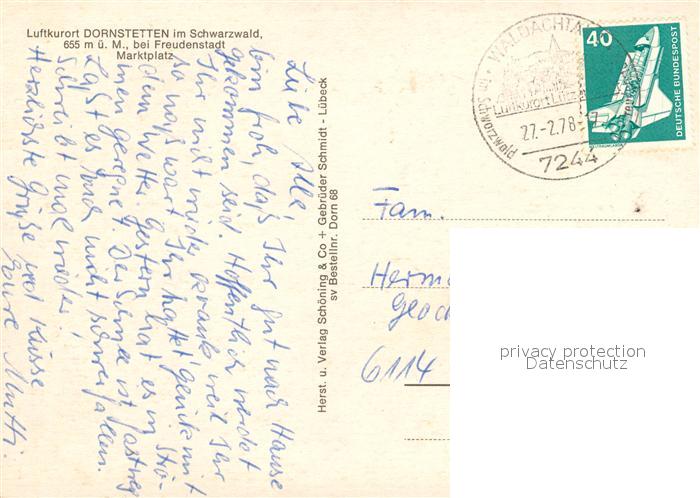 Luftkurort DORNSTETTEN im Schwarzwald,
655 m ü. M., bei Freudenstadt
Marktplatz
Liebe Alle,
bin froh, daß Ihr gut nach Hause
gekommen seid. Hoffentlich werdet
Ihr nicht wieder krank weil Ihr
so naß wart. Ihr hattet Glück mit
dem Wetter. Gestern hat es in Strö-
men geregnet. Der Schnee ist fast weg
Laßt es Euch nicht schwer fallen.
Schreibt mal wieder!
Herzlichste Grüße und Küsse
Eure Mutti.
Herst. u. Verlag Schöning & Co + Gebrüder Schmidt - Lübeck
sv Bestellnr. Dorn 68
WALDACHTAL
im Schwarzwald
Luftkurort
27.-2.78-17
7244
40
DEUTSCHE BUNDESPOST
Fam.
Herm
6114
privacy protection
Datenschutz